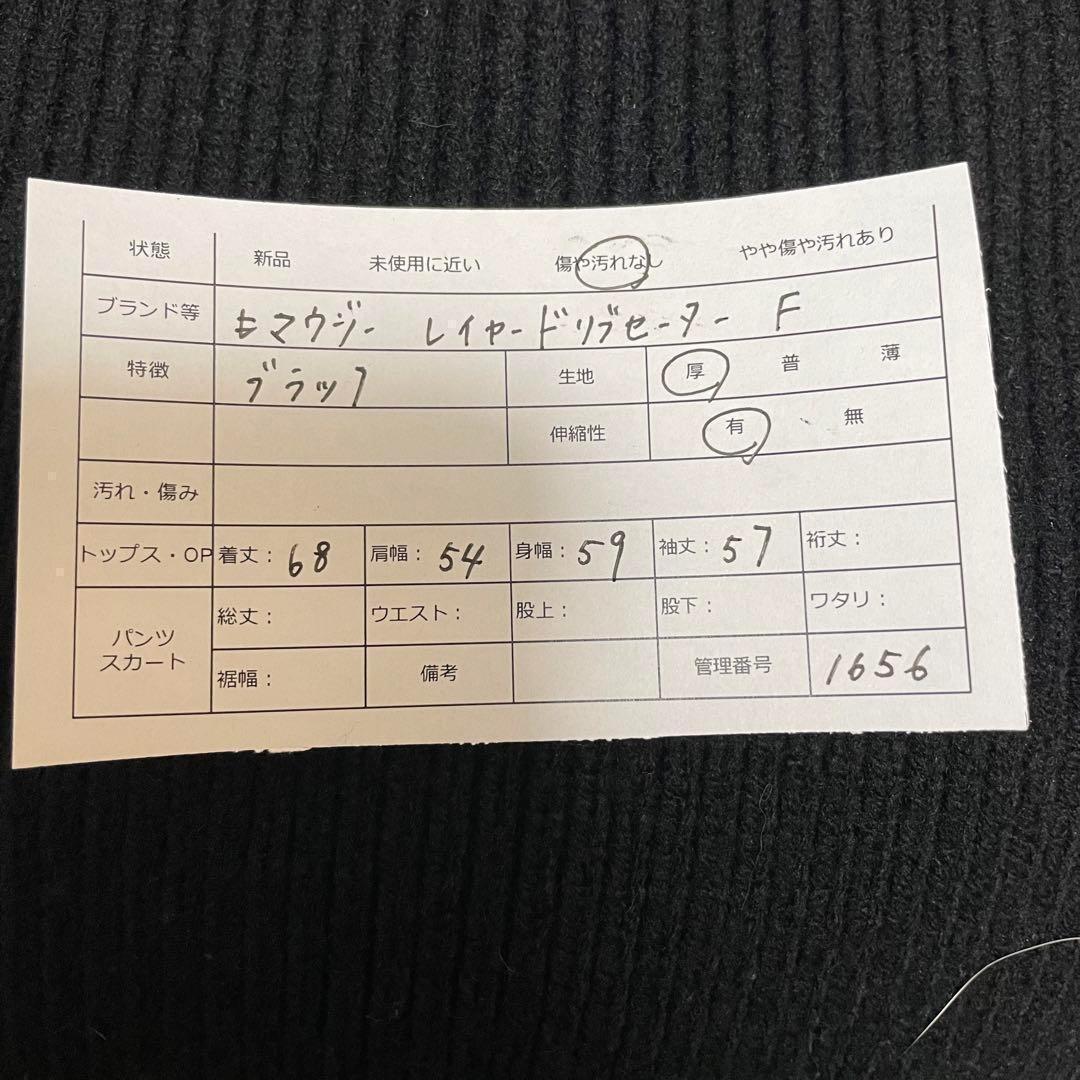 状態 新品 未使用に近い 傷や汚れなし やや傷や汚れあり
ブランド等 マウジー レイヤードリブセーター F
特徴 ブラック 生地 厚 普 薄
伸縮性 有 無
汚れ・傷み
トップス・OP 着丈：68 肩幅：54 身幅：59 袖丈：57 裄丈：
パンツ スカート 総丈： ウエスト： 股上： 股下： ワタリ：
裾幅： 備考 管理番号 1656